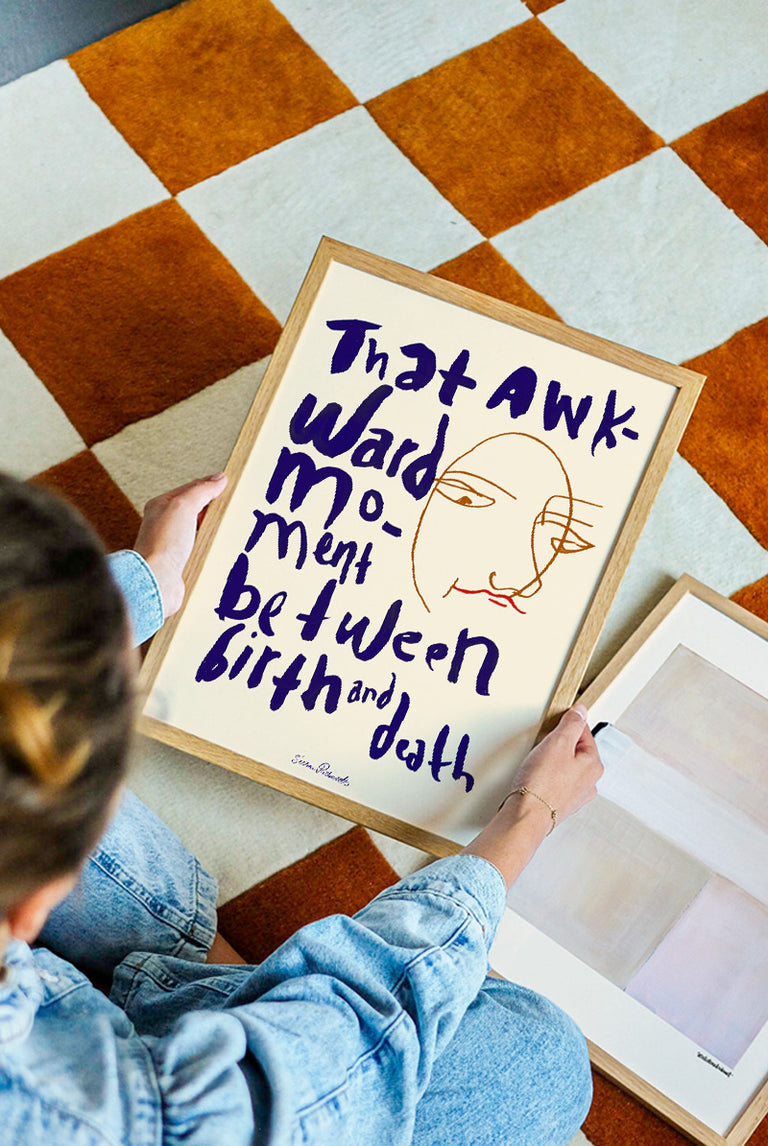 That Awk-
ward
mo-
ment
between
birth and
death